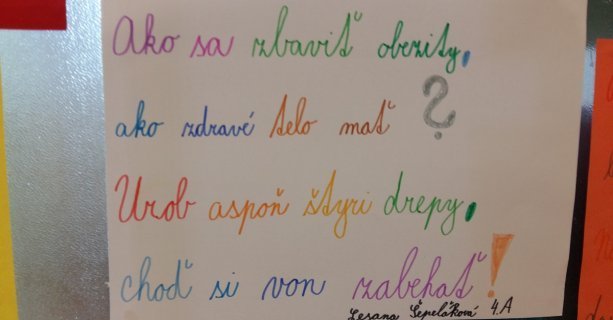 Ako sa zbaviť obezity,
ako zdravé telo mať ?
Urob aspoň štyri drepy,
choď si von zabehať !
Lesana Šepeláková 4.A